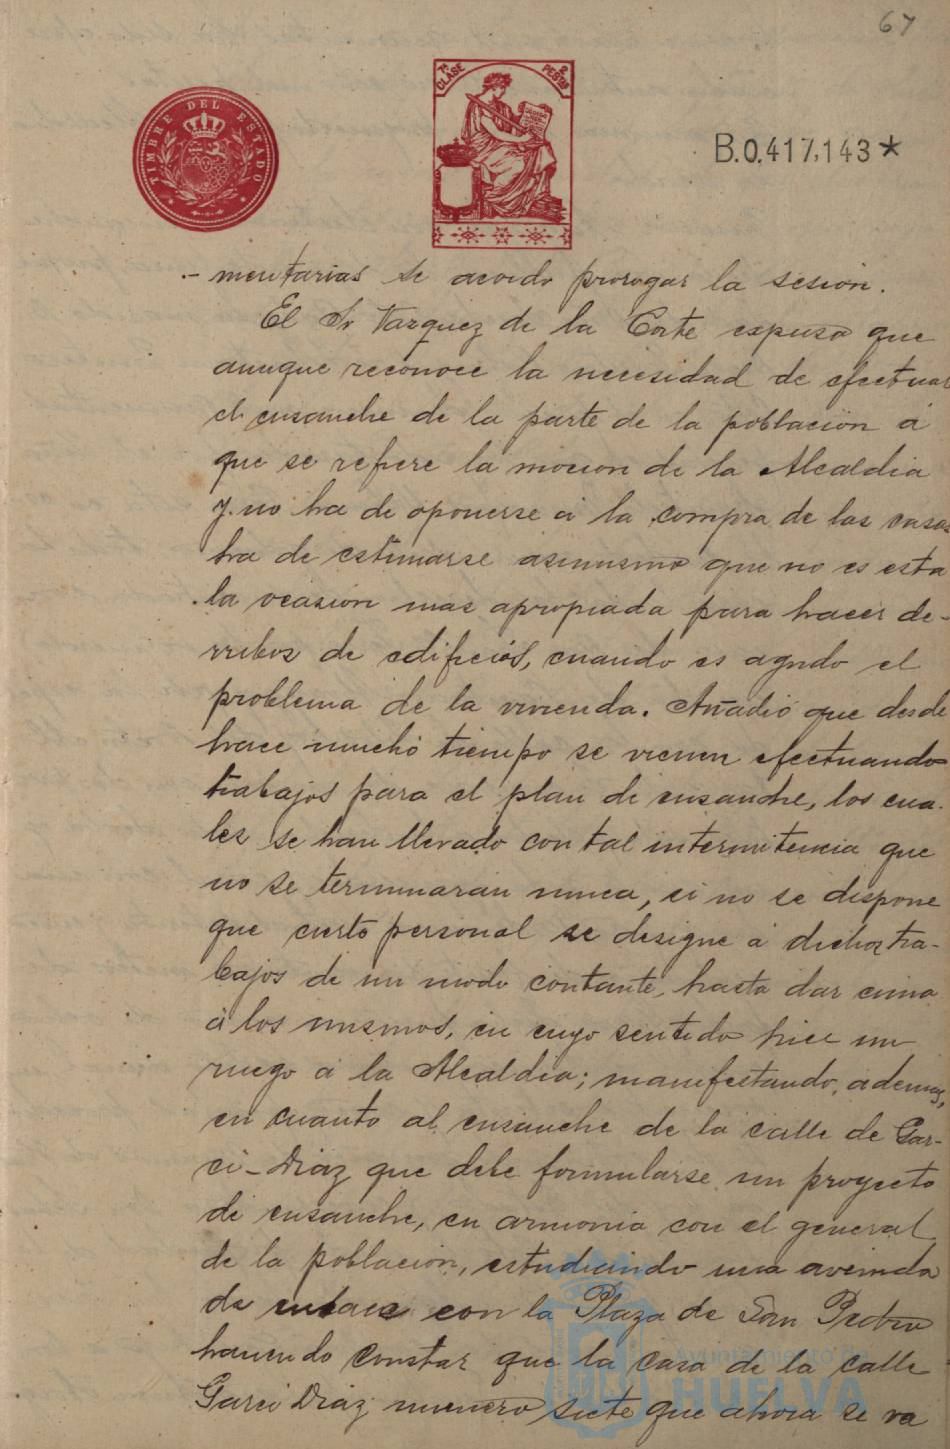 67
TIMBRE DEL ESTADO
7ª CLASE 2 PESTAS
B.0.417,143*
mentarias se acordo prorogar la sesión.
El Sr Vazquez de la Corte expuso que
aunque reconoce la necesidad de efectuar
el ensanche de la parte de la población á
que se refiere la mocion de la Alcaldia
y no ha de oponerse á la compra de las casas
ha de estimarse asimismo que no es esta
la ocasión mas apropiada para hacer de-
rribos de edificiós, cuando es agudo el
problema de la vivienda. Añadió que desde
hace mucho tiempo se vienen efectuando
trabajos para el plan de ensanche, los cua-
les se han llevado con tal intermitencia que
no se terminaran nunca, si no se dispone
que cierto personal se designe á dichos tra-
bajos de un modo contante, hasta dar cima
á los mismos, en cuyo sentido hice un
ruego á la Alcaldia; manifestando, ademas,
en cuanto al ensanche de la calle de Gar-
ci-Diaz que debe formularse un proyecto
de ensanche, en armonia con el general
de la población, estudiando una avenida
de enlace con la Plaza de San Pedro
haciendo constar que la casa de la calle
Garci Diaz numero siete que ahora se va
Ayuntamiento de
HUELVA